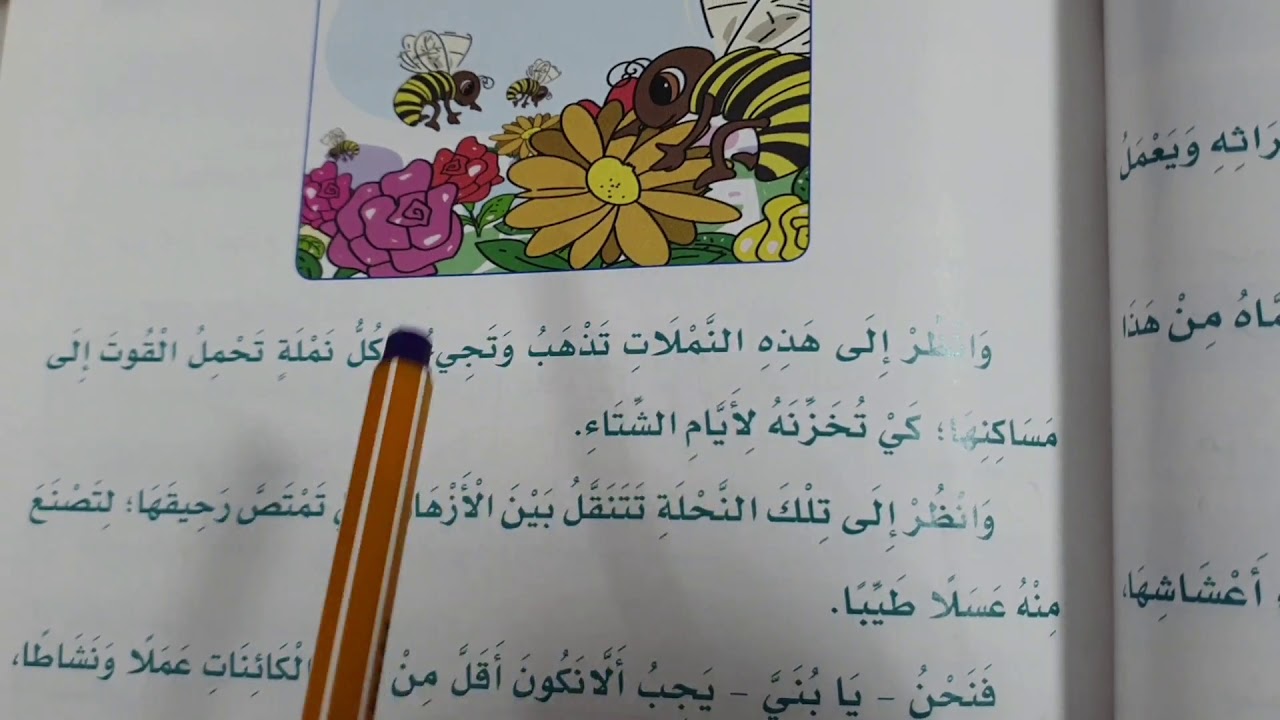 وَانْظُرْ إِلَى هَذِهِ النَّمْلَاتِ تَذْهَبُ وَتَجِيءُ كُلُّ نَمْلَةٍ تَحْمِلُ الْقُوتَ إِلَى
مَسَاكِنِهَا؛ كَيْ تُخَزِّنَهُ لِأَيَّامِ الشِّتَاءِ.
وَانْظُرْ إِلَى تِلْكَ النَّحْلَةِ تَتَنَقَّلُ بَيْنَ الْأَزْهَا تَمْتَصَّ رَحِيقَهَا؛ لِتَصْنَعَ
مِنْهُ عَسَلًا طَيِّبًا.
فَنَحْنُ - يَا بُنَيَّ - يَجِبُ أَلَّا نَكُونَ أَقَلَّ مِنْ الْكَائِنَاتِ عَمَلًا وَنَشَاطًا،
رَاثِهِ وَيَعْمَلُ
مَّاهُ مِنْ هَذَا
أَعْشَاشِهَا،